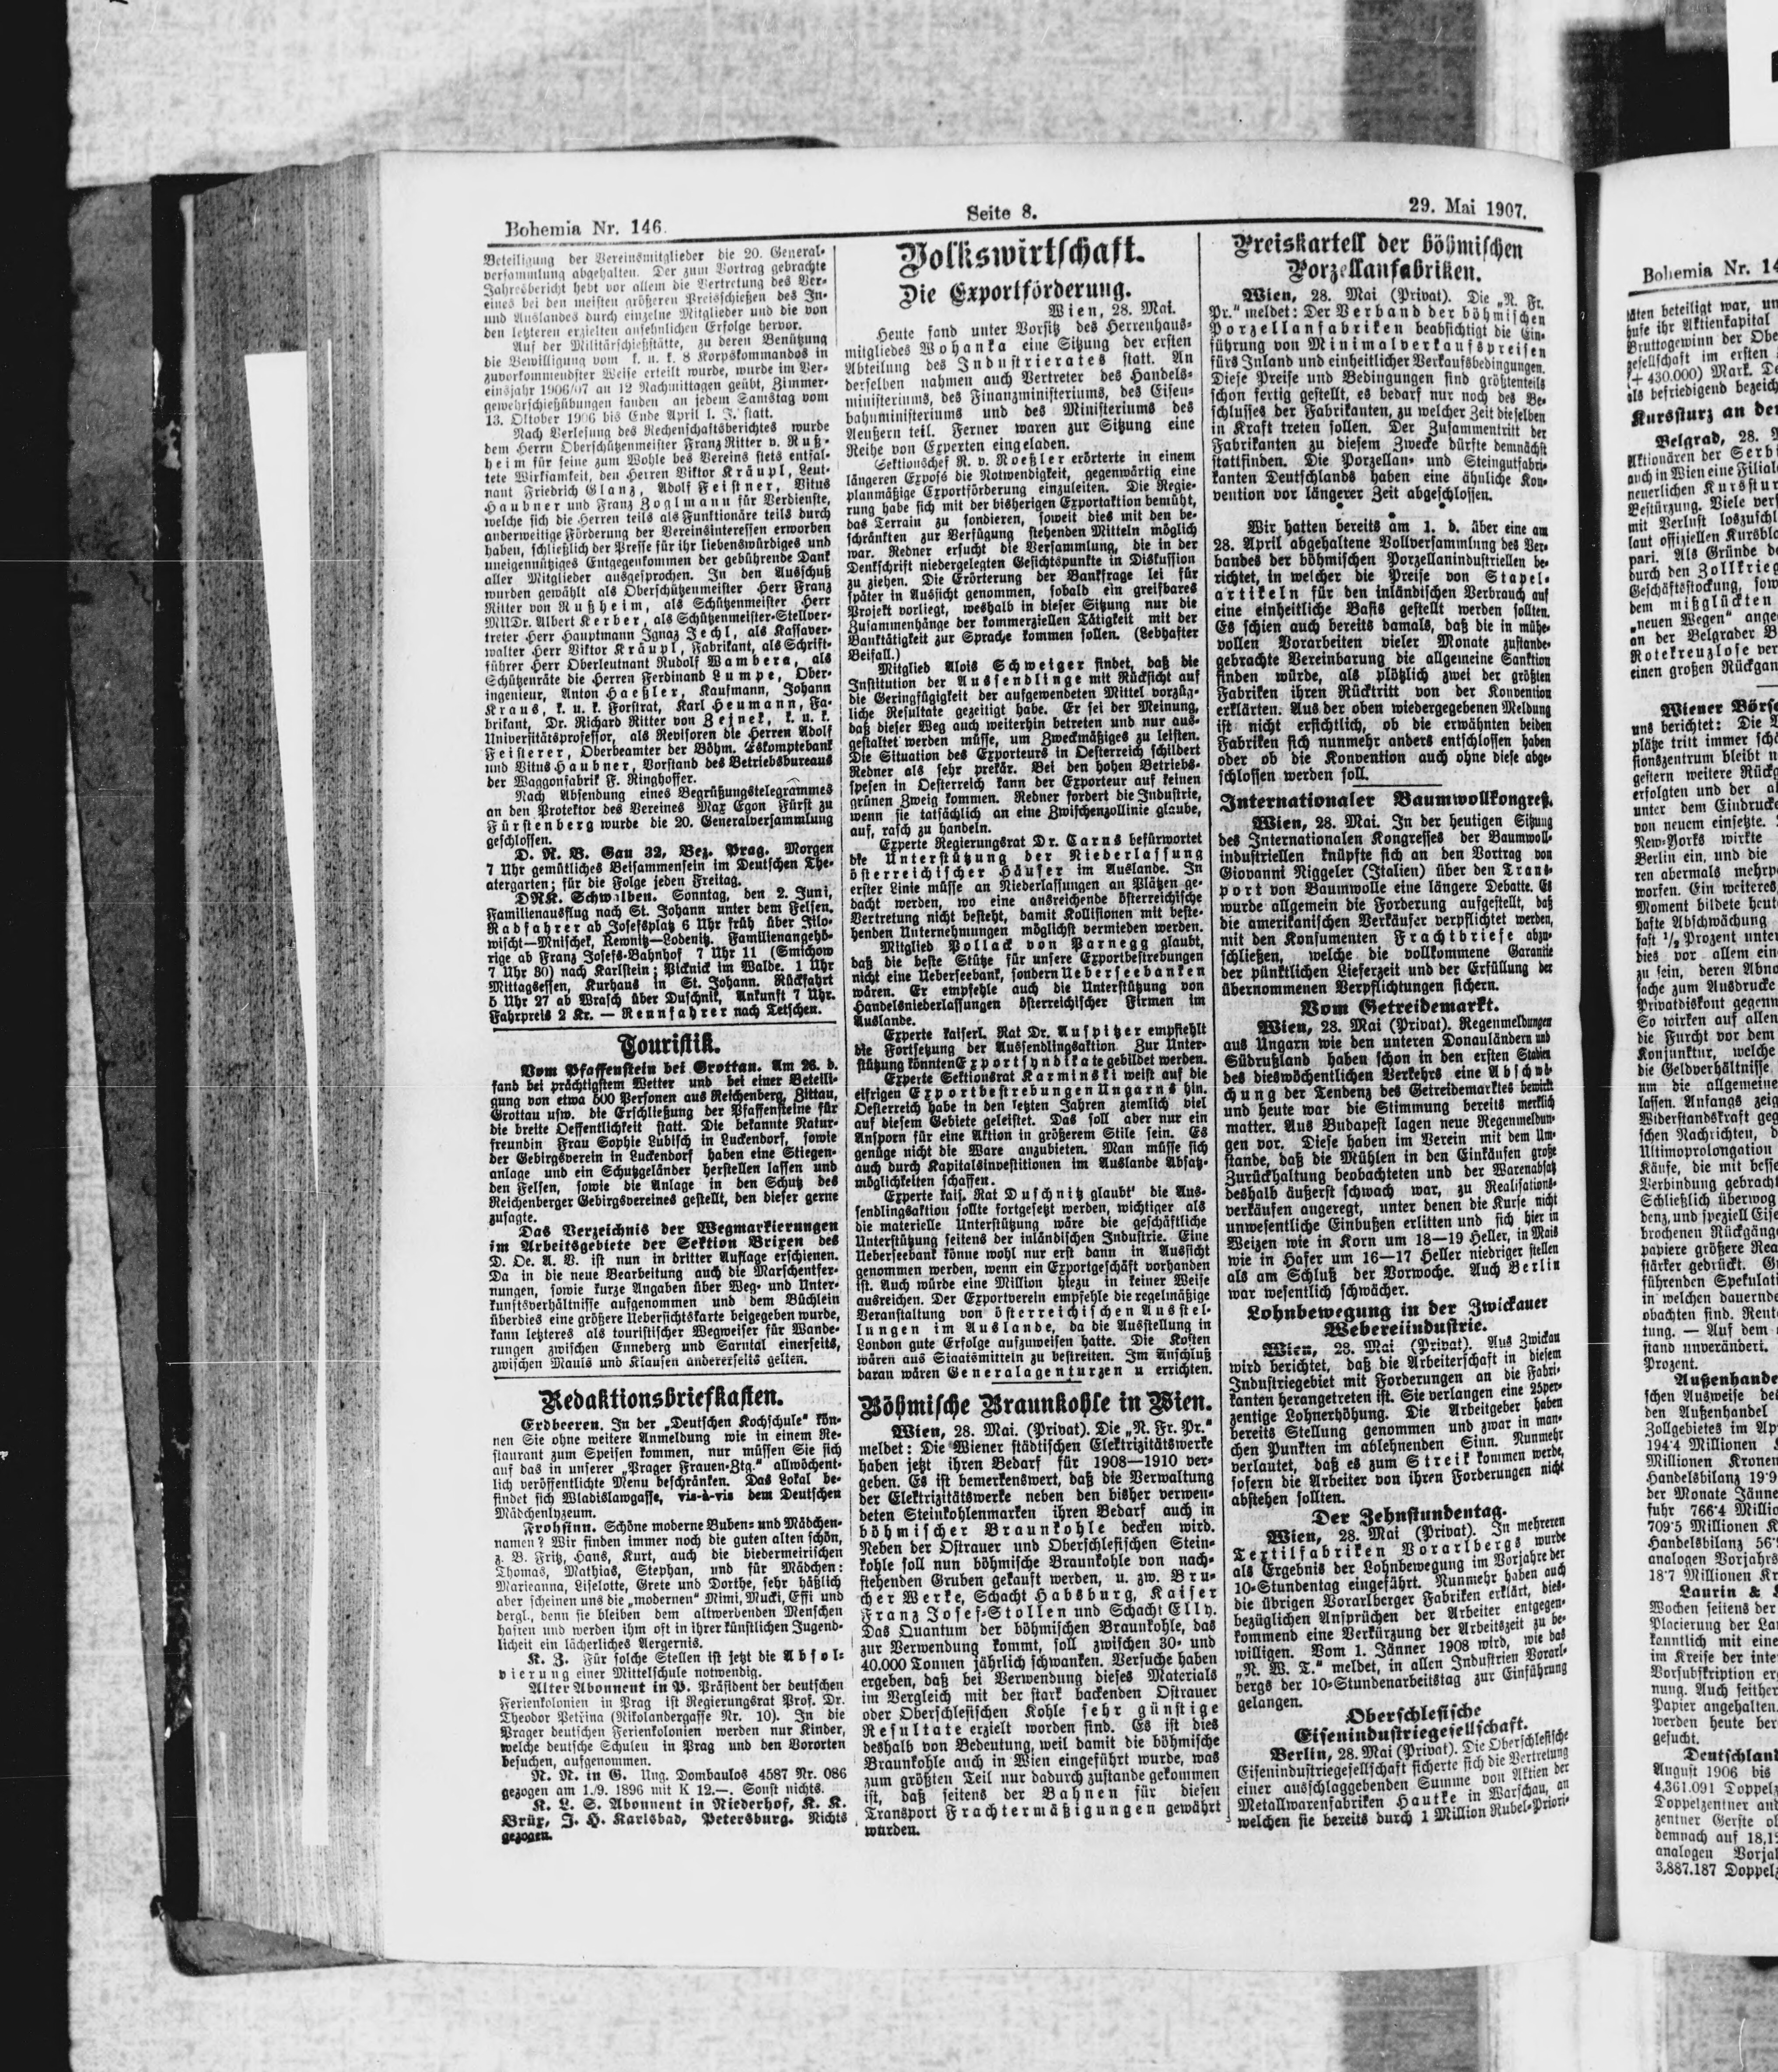 Bohemia Nr. 146.
Seite 8.
29. Mai 1907.
Beteiligung der Vereinsmitglieder die 20. General-
versammlung abgehalten. Der zum Vortrag gebrachte
Jahresbericht hebt vor allem die Vertretung des Ver-
eines bei den meisten größeren Preisschießen des In-
und Auslandes durch einzelne Mitglieder und die von
den letzteren erzielten ansehnlichen Erfolge hervor.
Auf der Militärschießstätte, zu deren Benützung
die Bewilligung vom k. u. k. 8 Korpskommandos in
zuvorkommendster Weise erteilt wurde, wurde im Ver-
einsjahr 1906/07 an 12 Nachmittagen geübt, Zimmer-
gewehrschießübungen fanden an jedem Samstag vom
13. Oktober 1906 bis Ende April l. J. statt.
Nach Verlesung des Rechenschaftsberichtes wurde
dem Herrn Oberschützenmeister Franz Ritter v. Ruß-
heim für seine zum Wohle des Vereins stets entfal-
tete Wirksamkeit, den Herren Viktor Kräupl, Leut-
nant Friedrich Glanz, Adolf Feistner, Vitus
Haubner und Franz Zoglmann für Verdienste,
welche sich die Herren teils als Funktionäre teils durch
anderweitige Förderung der Vereinsinteressen erworben
haben, schließlich der Presse für ihr liebenswürdiges und
uneigennütziges Entgegenkommen der gebührende Dank
aller Mitglieder ausgesprochen. In den Ausschuß
wurden gewählt als Oberschützenmeister Herr Franz
Ritter von Rußheim, als Schützenmeister Herr
MUDr. Albert Kerber, als Schützenmeister-Stellver-
treter Herr Hauptmann Ignaz Jechl, als Kassaver-
walter Herr Viktor Kräupl, Fabrikant, als Schrift-
führer Herr Oberleutnant Rudolf Wambera, als
Schützenräte die Herren Ferdinand Lumpe, Ober-
ingenieur, Anton Haeßler, Kaufmann, Johann
Kraus, k. u. k. Forstrat, Karl Heumann, Fa-
brikant, Dr. Richard Ritter von Zeinek, k. u. k.
Universitätsprofessor, als Revisoren die Herren Adolf
Feisterer, Oberbeamter der Böhm. Eskomptebank
und Vitus Haubner, Vorstand des Betriebsbureaus
der Waggonfabrik F. Ringhoffer.
Nach Absendung eines Begrüßungstelegrammes
an den Protektor des Vereines Max Egon Fürst zu
Fürstenberg wurde die 20. Generalversammlung
geschlossen.
D. R. B. Gau 32, Bez. Prag. Morgen
7 Uhr gemütliches Beisammensein im Deutschen The-
atergarten; für die Folge jeden Freitag.
DRK. Schwalben. Sonntag, den 2. Juni,
Familienausflug nach St. Johann unter dem Felsen.
Radfahrer ab Josefsplatz 6 Uhr früh über Jilo-
wischt—Mnischek, Rewnitz—Lodenitz. Familienangehö-
rige ab Franz Josefs-Bahnhof 7 Uhr 11 (Smichow
7 Uhr 30) nach Karlstein; Picknick im Walde. 1 Uhr
Mittagsessen, Kurhaus in St. Johann. Rückfahrt
5 Uhr 27 ab Wrasch über Duschnik, Ankunft 7 Uhr.
Fahrpreis 2 Kr. — Rennfahrer nach Tetschen.
Touristik.
Vom Pfaffenstein bei Grottau. Am 26. d.
fand bei prächtigstem Wetter und bei einer Beteili-
gung von etwa 500 Personen aus Reichenberg, Zittau,
Grottau usw. die Erschließung der Pfaffensteine für
die breite Oeffentlichkeit statt. Die bekannte Natur-
freundin Frau Sophie Lubisch in Luckendorf, sowie
der Gebirgsverein in Luckendorf haben eine Stiegen-
anlage und ein Schutzgeländer herstellen lassen und
den Felsen, sowie die Anlage in den Schutz des
Reichenberger Gebirgsvereines gestellt, den dieser gerne
zusagte.
Das Verzeichnis der Wegmarkierungen
im Arbeitsgebiete der Sektion Brixen des
D. Oe. A. V. ist nun in dritter Auflage erschienen.
Da in die neue Bearbeitung auch die Marschentfer-
nungen, sowie kurze Angaben über Weg- und Unter-
kunftsverhältnisse aufgenommen und dem Büchlein
überdies eine größere Uebersichtskarte beigegeben wurde,
kann letzteres als touristischer Wegweiser für Wande-
rungen zwischen Enneberg und Sarntal einerseits,
zwischen Mauls und Klausen andererseits gelten.
Redaktionsbriefkasten.
Erdbeeren. In der „Deutschen Kochschule“ kön-
nen Sie ohne weitere Anmeldung wie in einem Re-
staurant zum Speisen kommen, nur müssen Sie sich
auf das in unserer „Prager Frauen-Ztg.“ allwöchent-
lich veröffentlichte Menu beschränken. Das Lokal be-
findet sich Wladislawgasse, vis-à-vis dem Deutschen
Mädchenlyzeum.
Frohsinn. Schöne moderne Buben- und Mädchen-
namen? Wir finden immer noch die guten alten schön,
z. B. Fritz, Hans, Kurt, auch die biedermeirischen
Thomas, Mathias, Stephan, und für Mädchen:
Marieanna, Liselotte, Grete und Dorthe, sehr häßlich
aber scheinen uns die „modernen“ Mimi, Mucki, Effi und
dergl., denn sie bleiben dem altwerdenden Menschen
haften und werden ihm oft in ihrer künstlichen Jugend-
licheit ein lächerliches Aergernis.
K. Z. Für solche Stellen ist jetzt die Absol-
vierung einer Mittelschule notwendig.
Alter Abonnent in P. Präsident der deutschen
Ferienkolonien in Prag ist Regierungsrat Prof. Dr.
Theodor Petřina (Nikolandergasse Nr. 10). In die
Prager deutschen Ferienkolonien werden nur Kinder,
welche deutsche Schulen in Prag und den Vororten
besuchen, aufgenommen.
N. N. in G. Ung. Dombaulos 4587 Nr. 086
gezogen am 1./9. 1896 mit K 12.—. Sonst nichts.
K. L. S. Abonnent in Niederhof, K. K.
Brüx, J. H. Karlsbad, Petersburg. Nichts
gezogen.
Volkswirtschaft.
Die Exportförderung.
Wien, 28. Mai.
Heute fand unter Vorsitz des Herrenhaus-
mitgliedes Wohanka eine Sitzung der ersten
Abteilung des Industrierates statt. An
derselben nahmen auch Vertreter des Handels-
ministeriums, des Finanzministeriums, des Eisen-
bahnministeriums und des Ministeriums des
Aeußern teil. Ferner waren zur Sitzung eine
Reihe von Experten eingeladen.
Sektionschef R. v. Roeßler erörterte in einem
längeren Exposé die Notwendigkeit, gegenwärtig eine
planmäßige Exportförderung einzuleiten. Die Regie-
rung habe sich mit der bisherigen Exportaktion bemüht,
das Terrain zu sondieren, soweit dies mit den be-
schränkten zur Verfügung stehenden Mitteln möglich
war. Redner ersucht die Versammlung, die in der
Denkschrift niedergelegten Gesichtspunkte in Diskussion
zu ziehen. Die Erörterung der Bankfrage lei für
später in Aussicht genommen, sobald ein greifbares
Projekt vorliegt, weshalb in dieser Sitzung nur die
Zusammenhänge der kommerziellen Tätigkeit mit der
Banktätigkeit zur Sprache kommen sollen. (Lebhafter
Beifall.)
Mitglied Alois Schweiger findet, daß die
Institution der Aussendlinge mit Rücksicht auf
die Geringfügigkeit der aufgewendeten Mittel vorzüg-
liche Resultate gezeitigt habe. Er sei der Meinung,
daß dieser Weg auch weiterhin betreten und nur aus-
gestaltet werden müsse, um Zweckmäßiges zu leisten.
Die Situation des Exporteurs in Oesterreich schilbert
Redner als sehr prekär. Bei den hohen Betriebs-
spesen in Oesterreich kann der Exporteur auf keinen
grünen Zweig kommen. Redner fordert die Industrie,
wenn sie tatsächlich an eine Zwischenzollinie glaube,
auf, rasch zu handeln.
Experte Regierungsrat Dr. Carus befürwortet
die Unterstützung der Niederlassung
österreichischer Häuser im Auslande. In
erster Linie müsse an Niederlassungen an Plätzen ge-
dacht werden, wo eine ausreichende österreichische
Vertretung nicht besteht, damit Kollisionen mit beste-
henden Unternehmungen möglichst vermieden werden.
Mitglied Pollack von Parnegg glaubt,
daß die beste Stütze für unsere Exportbestrebungen
nicht eine Ueberseebank, sondern Ueberseebanken
wären. Er empfehle auch die Unterstützung von
Handelsniederlassungen österreichischer Firmen im
Auslande.
Experte kaiserl. Rat Dr. Auspitzer empfiehlt
die Fortsetzung der Aussendlingsaktion. Zur Unter-
stützung könnten Exportsyndikate gebildet werden.
Experte Sektionsrat Karminski weist auf die
eifrigen Exportbestrebungen Ungarns hin.
Oesterreich habe in den letzten Jahren ziemlich viel
auf diesem Gebiete geleistet. Das soll aber nur ein
Ansporn für eine Aktion in größerem Stile sein. Es
genüge nicht die Ware anzubieten. Man müsse sich
auch durch Kapitalsinvestitionen im Auslande Absatz-
möglichkeiten schaffen.
Experte kais. Rat Duschnitz glaubt' die Aus-
sendlingsaktion sollte fortgesetzt werden, wichtiger als
die materielle Unterstützung wäre die geschäftliche
Unterstützung seitens der inländischen Industrie. Eine
Ueberseebank könne wohl nur erst dann in Aussicht
genommen werden, wenn ein Exportgeschäft vorhanden
ist. Auch würde eine Million hiezu in keiner Weise
ausreichen. Der Exportverein empfehle die regelmäßige
Veranstaltung von österreichischen Ausstel-
lungen im Auslande, da die Ausstellung in
London gute Erfolge aufzuweisen hatte. Die Kosten
wären aus Staatsmitteln zu bestreiten. Im Anschluß
daran wären Generalagenturzen u errichten.
Böhmische Braunkohle in Wien.
Wien, 28. Mai. (Privat). Die „N. Fr. Pr.“
meldet: Die Wiener städtischen Elektrizitätswerke
haben jetzt ihren Bedarf für 1908—1910 ver-
geben. Es ist bemerkenswert, daß die Verwaltung
der Elektrizitätswerke neben den bisher verwen-
deten Steinkohlenmarken ihren Bedarf auch in
böhmischer Braunkohle decken wird.
Neben der Ostrauer und Oberschlesischen Stein-
kohle soll nun böhmische Braunkohle von nach-
stehenden Gruben gekauft werden, u. zw. Bru-
cher Werke, Schacht Habsburg, Kaiser
Franz Josef-Stollen und Schacht Elly.
Das Quantum der böhmischen Braunkohle, das
zur Verwendung kommt, soll zwischen 30- und
40.000 Tonnen jährlich schwanken. Versuche haben
ergeben, daß bei Verwendung dieses Materials
im Vergleich mit der stark backenden Ostrauer
oder Oberschlesischen Kohle sehr günstige
Resultate erzielt worden sind. Es ist dies
deshalb von Bedeutung, weil damit die böhmische
Braunkohle auch in Wien eingeführt wurde, was
zum größten Teil nur dadurch zustande gekommen
ist, daß seitens der Bahnen für diesen
Transport Frachtermäßigungen gewährt
wurden.
Preiskartell der böhmischen
Porzellanfabriken.
Wien, 28. Mai (Privat). Die „N. Fr.
Pr.“ meldet: Der Verband der böhmischen
Porzellanfabriken beabsichtigt die Ein-
führung von Minimalverkaufspreisen
fürs Inland und einheitlicher Verkaufsbedingungen.
Diese Preise und Bedingungen sind größtenteils
schon fertig gestellt, es bedarf nur noch des Be-
schlusses der Fabrikanten, zu welcher Zeit dieselben
in Kraft treten sollen. Der Zusammentritt der
Fabrikanten zu diesem Zwecke dürfte demnächst
stattfinden. Die Porzellan- und Steingutfabri-
kanten Deutschlands haben eine ähnliche Kon-
vention vor längerer Zeit abgeschlossen.
* * *
Wir hatten bereits am 1. d. über eine am
28. April abgehaltene Vollversammlung des Ver-
bandes der böhmischen Porzellanindustriellen be-
richtet, in welcher die Preise von Stapel-
artikeln für den inländischen Verbrauch auf
eine einheitliche Basis gestellt werden sollten.
Es schien auch bereits damals, daß die in mühe-
vollen Vorarbeiten vieler Monate zustande-
gebrachte Vereinbarung die allgemeine Sanktion
finden würde, als plötzlich zwei der größten
Fabriken ihren Rücktritt von der Konvention
erklärten. Aus der oben wiedergegebenen Meldung
ist nicht ersichtlich, ob die erwähnten beiden
Fabriken sich nunmehr anders entschlossen haben
oder ob die Konvention auch ohne diese abge-
schlossen werden soll.
Internationaler Baumwollkongreß.
Wien, 28. Mai. In der heutigen Sitzung
des Internationalen Kongresses der Baumwoll-
industriellen knüpfte sich an den Vortrag von
Giovanni Riggeler (Italien) über den Trans-
port von Baumwolle eine längere Debatte. Es
wurde allgemein die Forderung aufgestellt, daß
die amerikanischen Verkäufer verpflichtet werden,
mit den Konsumenten Frachtbriefe abzu-
schließen, welche die vollkommene Garantie
der pünktlichen Lieferzeit und der Erfüllung der
übernommenen Verpflichtungen sichern.
Vom Getreidemarkt.
Wien, 28. Mai (Privat). Regenmeldungen
aus Ungarn wie den unteren Donauländern und
Südrußland haben schon in den ersten Stadien
des dieswöchentlichen Verkehrs eine Abschwä-
chung der Tendenz des Getreidemarktes bewirkt
und heute war die Stimmung bereits merklich
matter. Aus Budapest lagen neue Regenmeldun-
gen vor. Diese haben im Verein mit dem Um-
stande, daß die Mühlen in den Einkäufen große
Zurückhaltung beobachteten und der Warenabsatz
deshalb äußerst schwach war, zu Realisations-
verkäufen angeregt, unter denen die Kurse nicht
unwesentliche Einbußen erlitten und sich hier in
Weizen wie in Korn um 18—19 Heller, in Mais
wie in Hafer um 16—17 Heller niedriger stellen
als am Schluß der Vorwoche. Auch Berlin
war wesentlich schwächer.
Lohnbewegung in der Zwickauer
Webereiindustrie.
Wien, 28. Mai (Privat). Aus Zwickau
wird berichtet, daß die Arbeiterschaft in diesem
Industriegebiet mit Forderungen an die Fabri-
kanten herangetreten ist. Sie verlangen eine 25per-
zentige Lohnerhöhung. Die Arbeitgeber haben
bereits Stellung genommen und zwar in man-
chen Punkten im ablehnenden Sinn. Nunmehr
verlautet, daß es zum Streik kommen werde,
sofern die Arbeiter von ihren Forderungen nicht
abstehen sollten.
Der Zehnstundentag.
Wien, 28. Mai (Privat). In mehreren
Textilfabriken Vorarlbergs wurde
als Ergebnis der Lohnbewegung im Vorjahre der
10-Stundentag eingeführt. Nunmehr haben auch
die übrigen Vorarlberger Fabriken erklärt, dies-
bezüglichen Ansprüchen der Arbeiter entgegen-
kommend eine Verkürzung der Arbeitszeit zu be-
willigen. Vom 1. Jänner 1908 wird, wie das
„N. W. T.“ meldet, in allen Industrien Vorarl-
bergs der 10-Stundenarbeitstag zur Einführung
gelangen.
Oberschlesische
Eisenindustriegesellschaft.
Berlin, 28. Mai (Privat). Die Oberschlesische
Eisenindustriegesellschaft sicherte sich die Vertretung
einer ausschlaggebenden Summe von Aktien der
Metallwarenfabriken Hantke in Warschau, an
welchen sie bereits durch 1 Million Rubel-Priori-
Bohemia Nr. 14
täten beteiligt war, un
hufe ihr Aktienkapital
Bruttogewinn der Obe
gesellschaft im ersten
(+ 430.000) Mark. De
als befriedigend bezeich
Kurssturz an der
Belgrad, 28. M
Aktionären der Serb
auch in Wien eine Filiale
neuerlichen Kursstur
Bestürzung. Viele vers
mit Verlust loszuschl
laut offiziellen Kursbla
pari. Als Gründe be
durch den Zollkrieg
Geschäftsstockung, sow
dem mißglückten
„neuen Wegen“ ange
an der Belgrader B
Rotekreuzlose ver
einen großen Rückgan
Wiener Börse
uns berichtet: Die
plätze tritt immer schä
sionszentrum bleibt n
gestern weitere Rückg
erfolgten und der al
unter dem Eindrucke
von neuem einsetzte.
New-Yorks wirkte
Berlin ein, und die
ren abermals mehrp
worfen. Ein weiteres
Moment bildete heut
hafte Abschwächung
fast 1/2 Prozent unter
dies vor allem ein
zu sein, deren Abna
sache zum Ausdrucke
Privatdiskont gegenn
So wirken auf allen
die Furcht vor dem
Konjunktur, welche
die Geldverhältnisse
um die allgemeine
lassen. Anfangs zeig
Widerstandskraft geg
schen Nachrichten, d
Ultimoprolongation
Käufe, die mit besse
Verbindung gebracht
Schließlich überwog
denz, und speziell Eise
brochenen Rückgäng
papiere größere Rea
stärker gedrückt. G
führenden Spekulati
in welchen dauernde
obachten sind. Rent
tung. — Auf dem
stand unverändert.
Prozent.
Außenhande
schen Ausweise de
den Außenhandel
Zollgebietes im Ap
194·4 Millionen
Millionen Kronen
Handelsbilanz 19·9
der Monate Jänne
fuhr 766·4 Millio
709·5 Millionen K
Handelsbilanz 56·
analogen Vorjahrs
18·7 Millionen Kr
Laurin &
Wochen seitens der
Placierung der Lau
kanntlich mit eine
im Kreise der inte
Vorsubskription er
nung. Auch seither
Papier angehalten.
werden heute ber
gesucht.
Deutschland
August 1906 bis
4,361.091 Doppelz
Doppelzentner and
zentner Gerste ol
demnach auf 18,1
analogen Vorjal
3,887.187 Doppelz